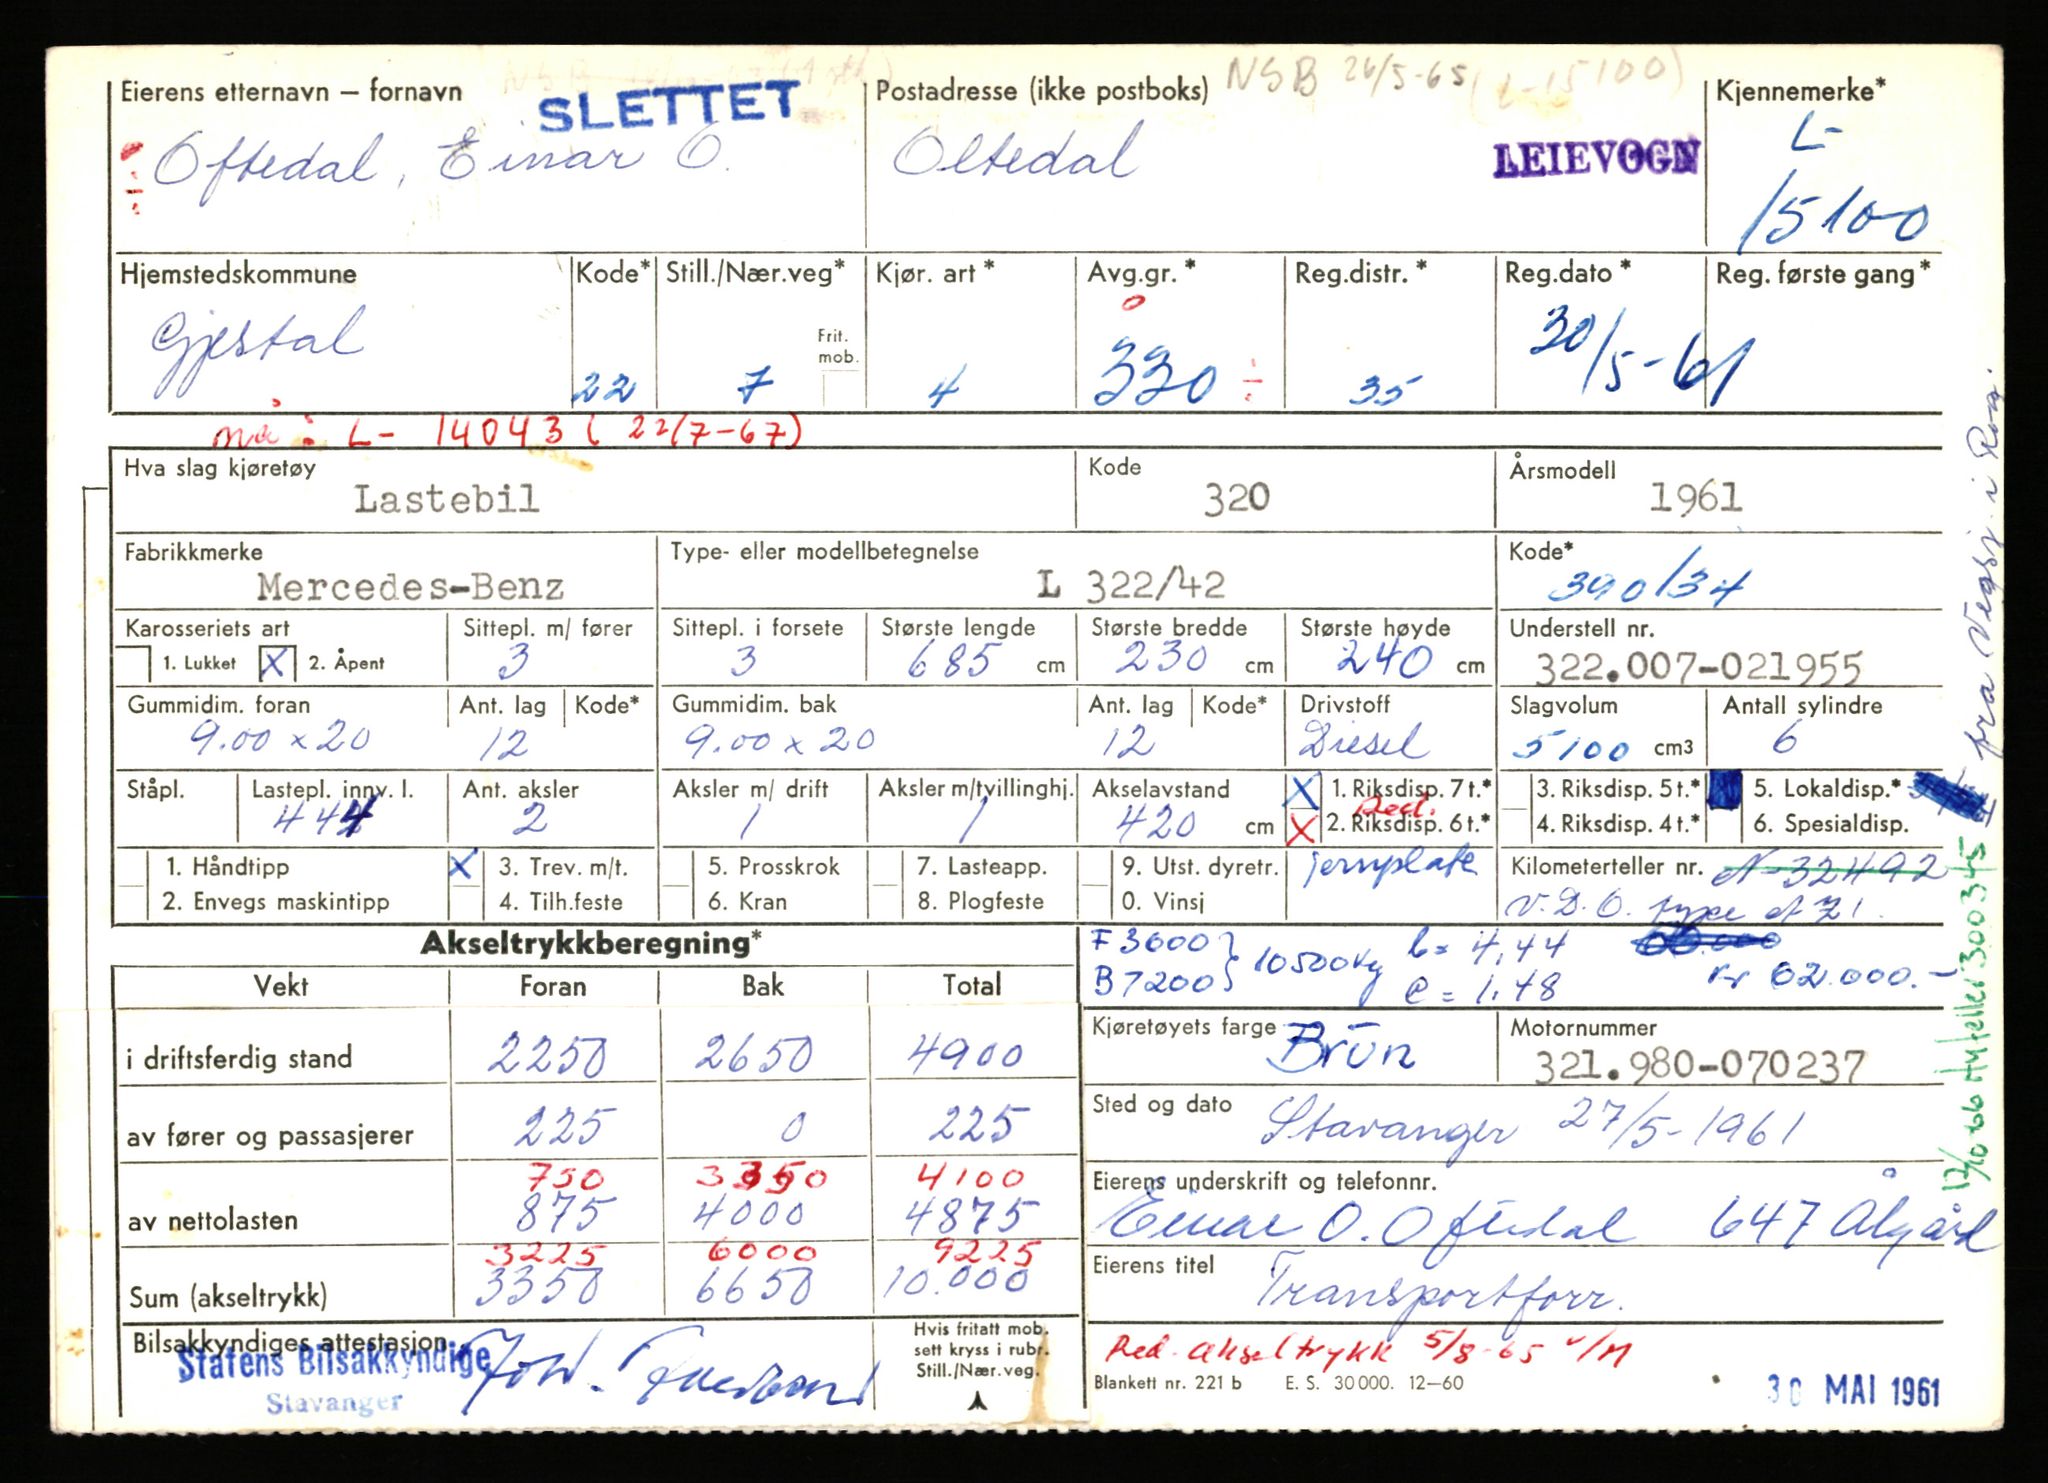 NSB 26/5-65 (L-15100)
Eierens etternavn – fornavn SLETTET Postadresse (ikke postboks) Kjennemerke*
Oftedal, Einar O. Oltedal LEIEVOGN L-
15100
Hjemstedskommune Kode* Still./Nær.veg* Kjør. art* Avg.gr.* Reg.distr.* Reg.dato* Reg. første gang*
Gjestal 22 7 Frit. mob. 4 330 35 30/5-61
nå: L- 14043 (22/7-67)
Hva slag kjøretøy Kode Årsmodell
Lastebil 320 1961
Fabrikkmerke Type- eller modellbetegnelse Kode*
Mercedes-Benz L 322/42 390/34
Karosseriets art Sittepl. m/ fører Sittepl. i forsete Største lengde Største bredde Største høyde Understell nr.
1. Lukket X 2. Åpent 3 3 685 cm 230 cm 240 cm 322.007-021955
Gummidim. foran Ant. lag Kode* Gummidim. bak Ant. lag Kode* Drivstoff Slagvolum Antall sylindre
9.00 x 20 12 9.00 x 20 12 Diesel 5100 cm3 6
Ståpl. Lastepl. innv. l. Ant. aksler Aksler m/ drift Aksler m/tvillinghj. Akselavstand X 1. Riksdisp. 7 t.* 3. Riksdisp. 5 t.* 5. Lokaldisp.*
444 2 1 1 420 cm X Red. 2. Riksdisp. 6 t.* 4. Riksdisp. 4 t.* 6. Spesialdisp.
1. Håndtipp X 3. Trev. m/t. 5. Prosskrok 7. Lasteapp. 9. Utst. dyretr. jernplate Kilometerteller nr. N-32492
2. Envegs maskintipp 4. Tilh.feste 6. Kran 8. Plogfeste 0. Vinsj V.D.O. type
Akseltrykkberegning* F 3600 B 7200 } 10500 kg b = 4,44
Vekt Foran Bak Total c = 1,48 kr 62.000.-
i driftsferdig stand 2250 2650 4900
Kjøretøyets farge Brun Motornummer
321.980-070237
av fører og passasjerer 225 0 225
Sted og dato Stavanger 27/5-1961
750 3350 4100
av nettolasten 875 4000 4875
Eierens underskrift og telefonnr.
Einar O. Oftedal 647 Ålgård
3225 6000 9225
Sum (akseltrykk) 3350 6650 10.000
Eierens titel Transportforr.
Bilsakkyndiges attestasjon Hvis fritatt mob. sett kryss i rubr. Still./Nær.veg.
Statens Bilsakkyndige
Stavanger
Red. akseltrykk 5/8-65
Blankett nr. 221 b E. S. 30000. 12–60
30 MAI 1961
fra Vegsj. i Rog.
12/10-66 Ny teller 300345